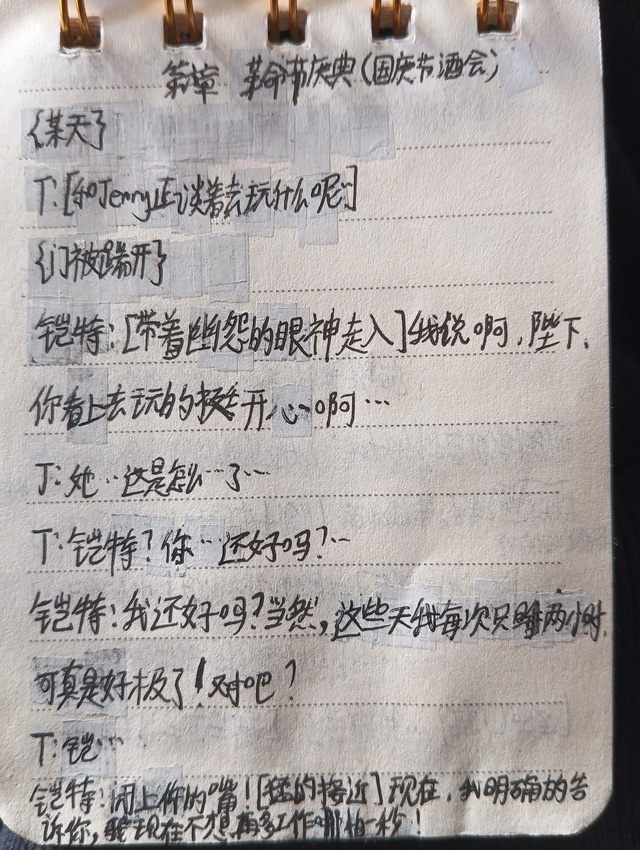 第章 革命节庆典(国庆节酒会)
{某天}
T:[和Jenny正谈着去玩什么呢]
{门被踹开}
铠特:[带着幽怨的眼神走入]我说啊,陛下,
你看上去玩的挺开心啊…
J:她…这是怎么…了…
T:铠特?你…还好吗?…
铠特:我还好吗?当然,这些天我每次只睡两小时,
可真是好极了!对吧?
T:铠…
铠特:闭上你的嘴![猛的接近]现在,我明确的告
诉你,我现在不想再多工作哪怕一秒!